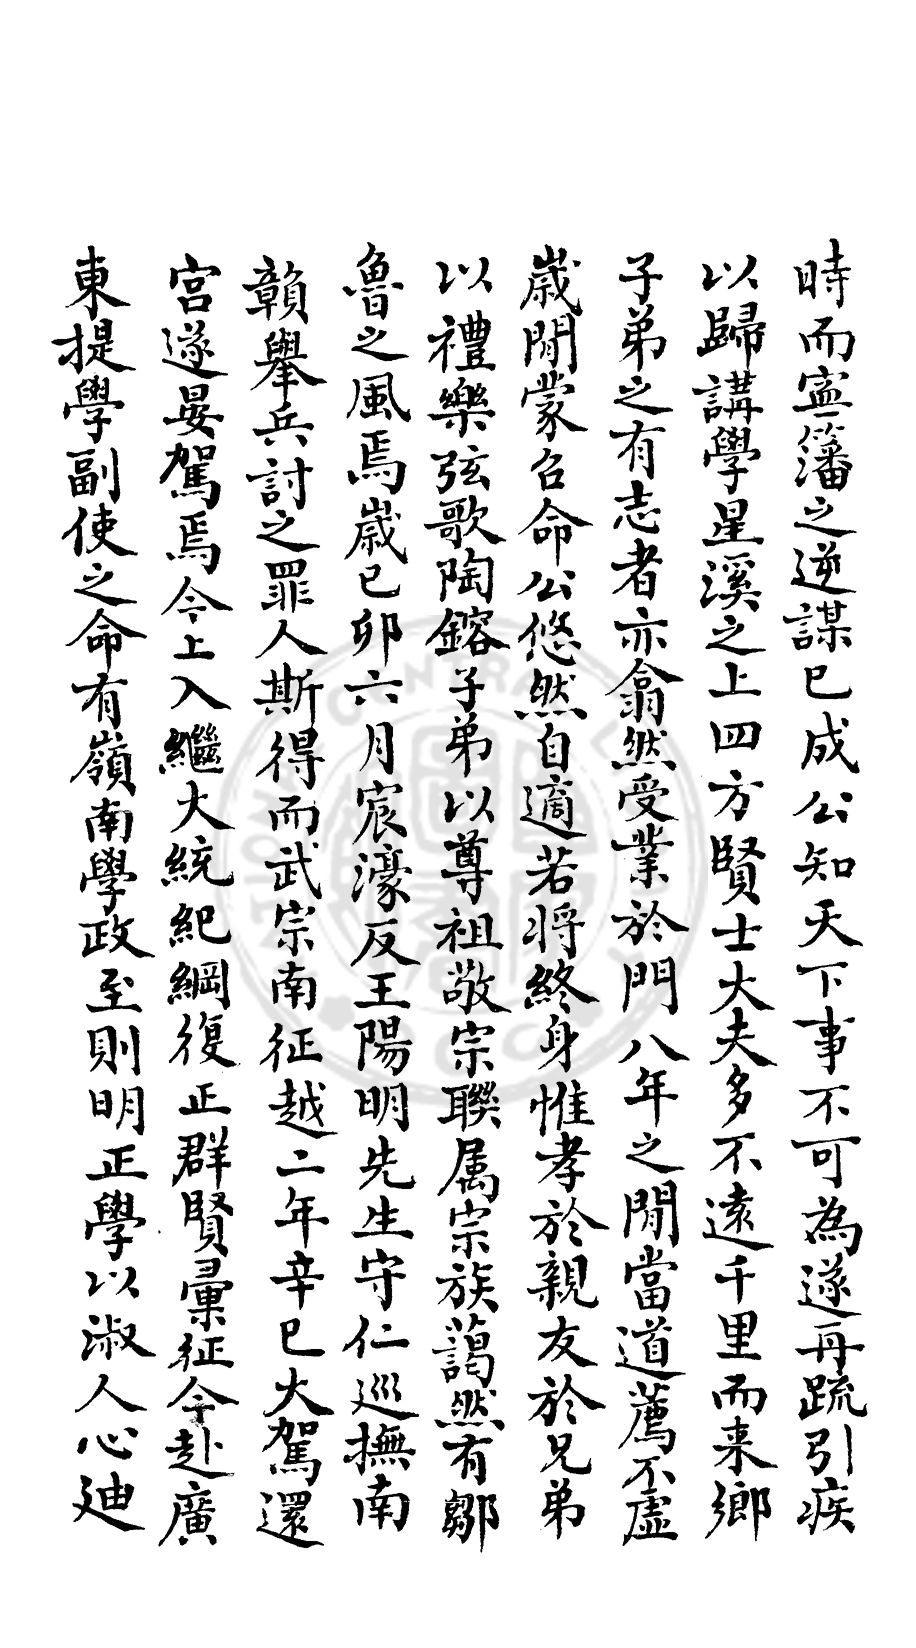 時而寧籓之逆謀已成公知天下事不可為遂再疏引疾
以歸講學星溪之上四方賢士大夫多不遠千里而来鄉
子弟之有志者亦翕然受業於門八年之閒當道薦不虛
歲閒蒙召命公悠然自適若將終身惟孝於親友於兄弟
以禮樂弦歌陶鎔子弟以尊祖敬宗聯属宗族藹然有鄒
魯之風焉歲己卯六月宸濠反王陽明先生守仁巡撫南
贛舉兵討之罪人斯得而武宗南征越二年辛巳大駕還
宮遂晏駕焉今上入繼大統紀綱復正群賢彙征今赴廣
東提學副使之命有嶺南學政至則明正學以淑人心迪